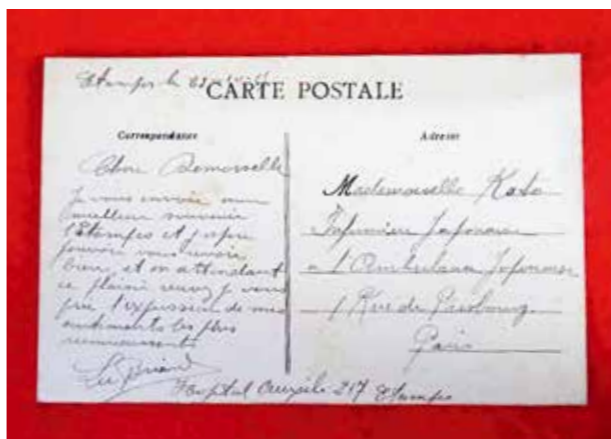 Etampes le
CARTE POSTALE
Correspondance
Adresse
Chere Demoiselle
Je vous envoie mon
meilleur souvenir
d'Etampes et j'espere
pouvoir vous revoir
bien, et en attendant
ce plaisir recevez je vous
prie l'expression de mes
sentiments les plus
reconnaissants
Mademoiselle Kato
Infirmiere Japonaise
a l'Ambulance Japonaise
1 Rue de Presbourg
Paris
Hopital 217 Etampes